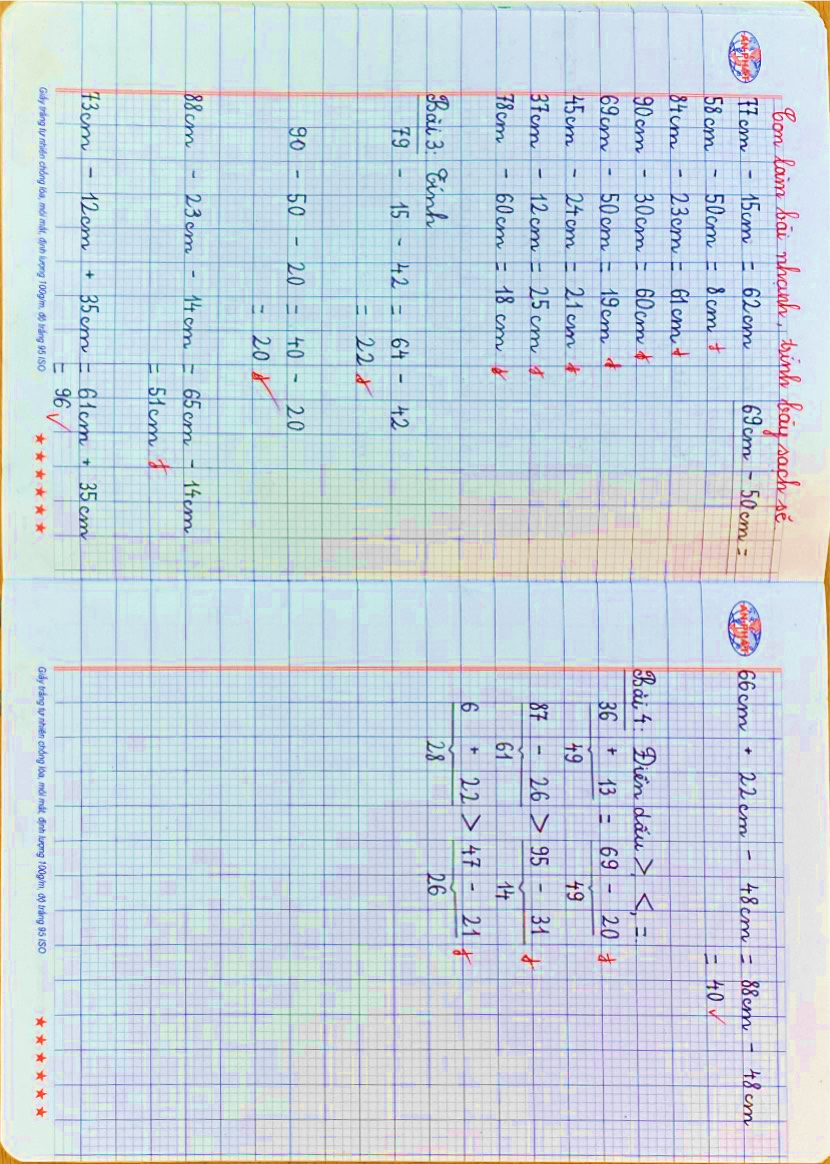 Con làm bài nhanh, trình bày sạch sẽ
77cm - 15cm = 62cm 69cm - 50cm =
58cm - 50cm = 8cm
84cm - 23cm = 61cm
90cm - 30cm = 60cm
69cm - 50cm = 19cm
45cm - 24cm = 21cm
37cm - 12cm = 25cm
78cm - 60cm = 18cm
Bài 3: Tính
79 - 15 - 42 = 64 - 42
= 22
90 - 50 - 20 = 40 - 20
= 20
88cm - 23cm - 14cm = 65cm - 14cm
= 51cm
73cm - 12cm + 35cm = 61cm + 35cm
= 96
Giấy trắng tự nhiên chống lóa, mỏi mắt, định lượng 100g/m, độ trắng 95 ISO
AN PHÁT
66cm + 22cm - 48cm = 88cm - 48cm
= 40
Bài 4: Điền dấu >, <, =
36 + 13 = 69 - 20
49 49
87 - 26 > 95 - 31
61 14
6 + 22 > 47 - 21
28 26
Giấy trắng tự nhiên chống lóa, mỏi mắt, định lượng 100g/m, độ trắng 95 ISO
AN PHÁT